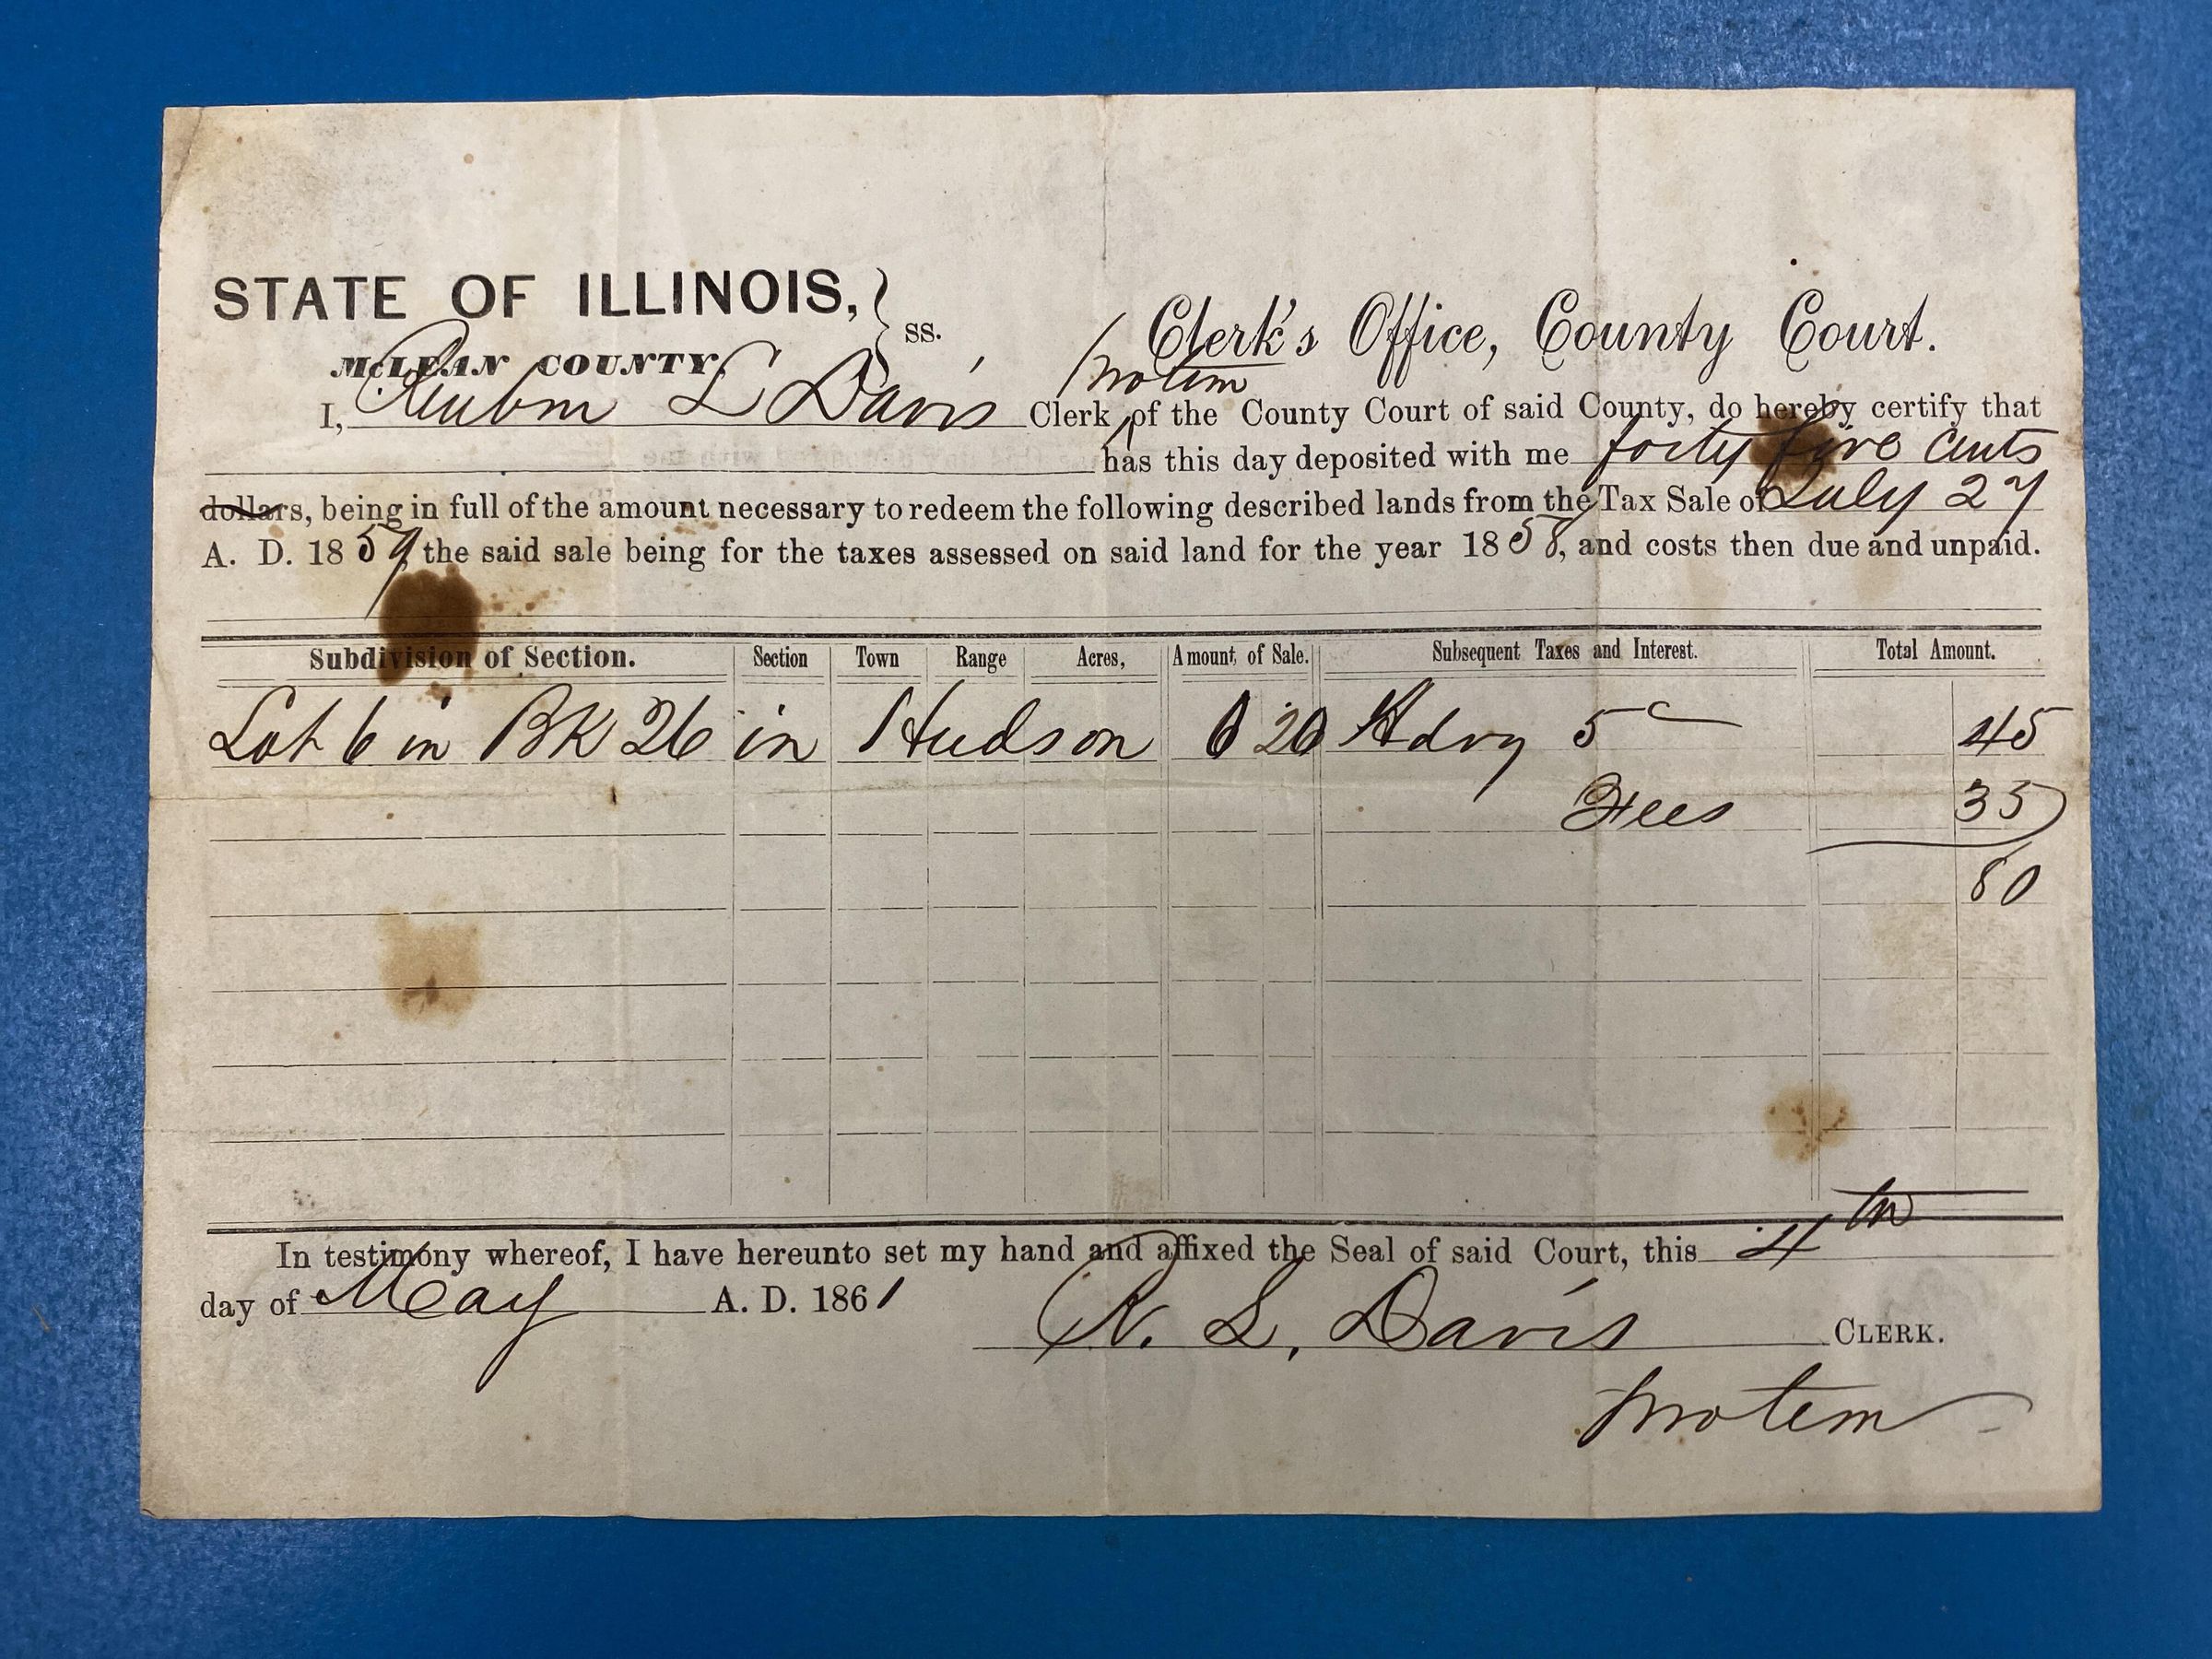 STATE OF ILLINOIS, } ss.
McLEAN COUNTY,
Clerk's Office, County Court.
protem
I, Reuben L Davis Clerk of the County Court of said County, do hereby certify that
has this day deposited with me forty five cents
dollars, being in full of the amount necessary to redeem the following described lands from the Tax Sale of July 27
A. D. 1859, the said sale being for the taxes assessed on said land for the year 1858, and costs then due and unpaid.
Subdivision of Section. Section Town Range Acres, Amount of Sale. Subsequent Taxes and Interest. Total Amount.
Lot 6 in BK 26 in Hudson 20 5c 45
Fees 35
80
In testimony whereof, I have hereunto set my hand and affixed the Seal of said Court, this 4th
day of May A. D. 1861
R. L. Davis CLERK.
protem